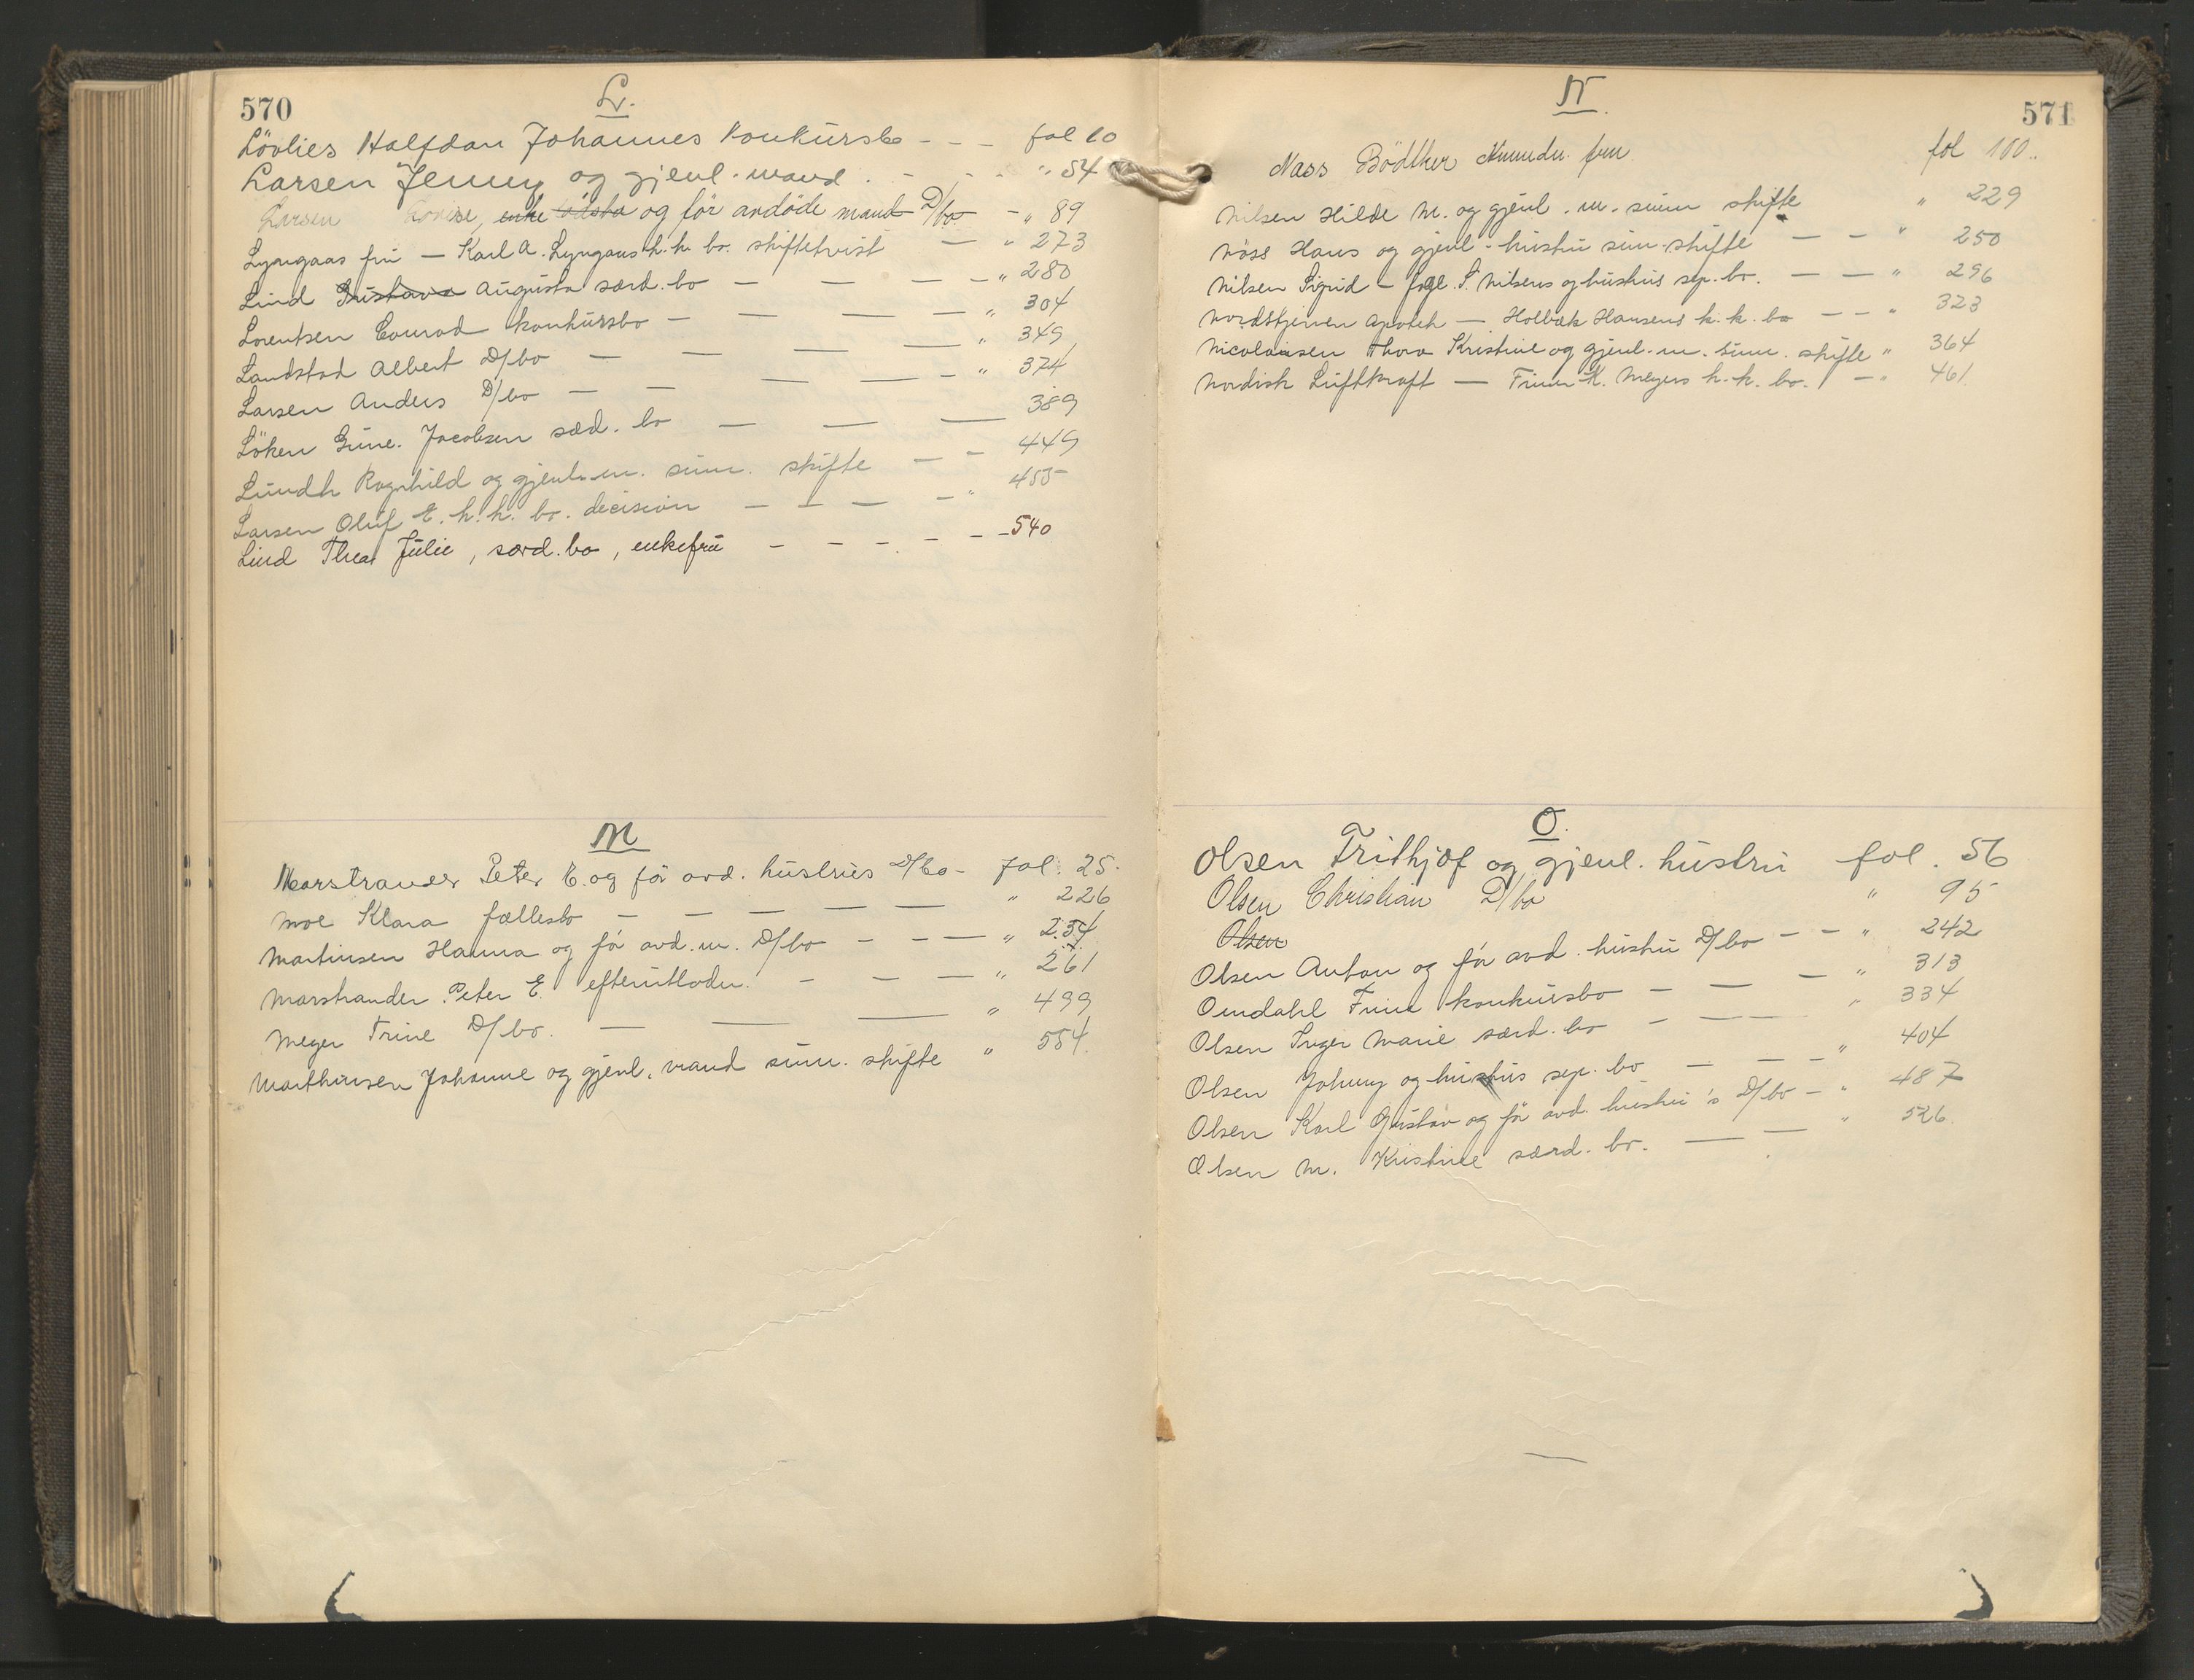 570
L.
Lövlies Halfdan Johannes Konkursbo - - - fol 10
Larsen Jenny og gjenl. mand . - - - " 54
Larsen Lovise, enke og för avdöde mand D/bo - " 89
Lyngaas fru — Karl A. Lyngaas k.k. bo. skiftetvist — " 273
Lind Gustava Augusta særd. bo — — — — " 280
Lorentsen Conrad konkursbo — — — — " 304
Landstad Albert D/bo — — — — " 349
Larsen Anders D/bo — — — — — " 374
Löken Gine. Jacobsen sæd. bo — — — 389
Lundh Ragnhild og gjenl. m. sum. skifte — — 449
Larsen Oluf E. k.k. bo. decision — — — — " 455
Lind Thea Julie, særd. bo, enkefru - - - - - - 540
M
Marstrander Peter E. og för avd. hustrus D/bo - fol. 25.
Moe Klara fællesbo — — — — — " 226
Martinsen Hanna og för avd. m. D/bo - - — " 234
Marstrander Peter E. efterutlodn. - — — — " 261
Meyer Trine D/bo. — — — " 499
Marthinsen Johanne og gjenl. mand sum. skifte " 554.
571
N.
Næss Bödtker fru fol 100..
Nilsen Hilde M. og gjenl. m. sum skifte " 229
Nöss Hans og gjenl. hustru sum. skifte — — " 250
Nilsen Sigrid - S. Nilsens og hustrus sep. bo. — — " 296
Nordstjernen Apotek — Holbæk Hansens k.k. bo — — " 323
Nicolaisen Thora Kristine og gjenl. m. sum. skifte " 364
Nordisk Luftkraft — Trine K. Meyers k.k. bo. — " 461
O.
Olsen Frithjof og gjenl. hustru fol. 56
Olsen Christian D/bo " 95
Olsen
Olsen Anton og för avd. hustru D/bo — — " 242
Omdahl Trine konkursbo — — — " 313
Olsen Inger Marie særd. bo — — " 334
Olsen Johnny og hustrus sep. bo — — — " 404
Olsen Karl Gustav og för avd. hustru's D/bo — " 487
Olsen M. Kristine særd. bo. — — " 526.